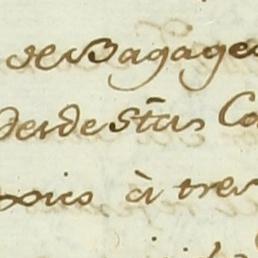 de Bagage
desde Stas Co
xico à tres